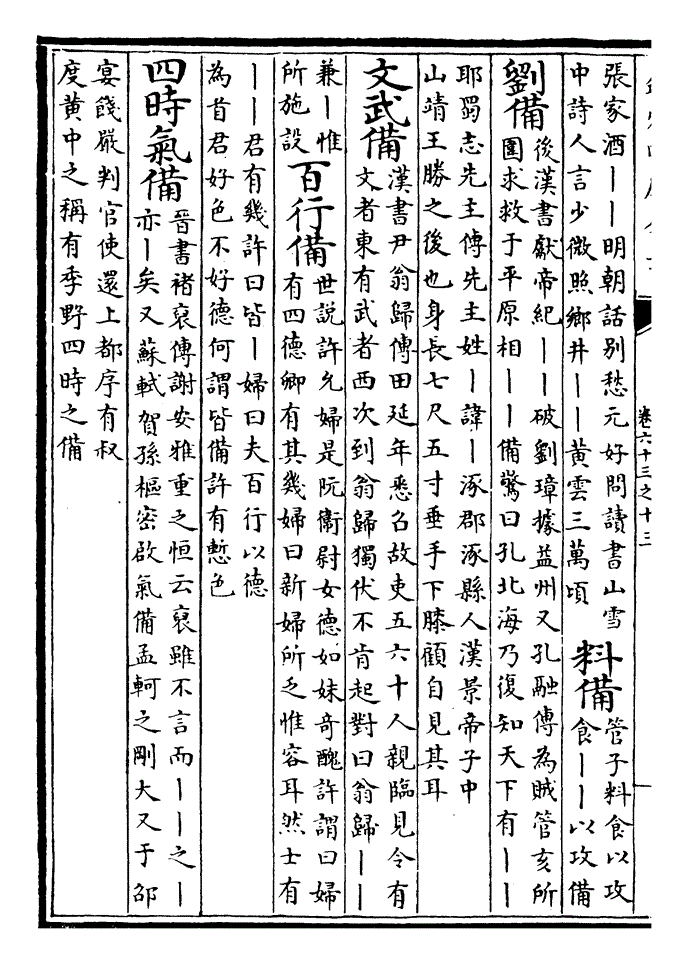 卷六十三之十三
張家酒丨丨明朝話別愁元好問讀書山雪
中詩人言少微照鄉井丨丨黃雲三萬頃
料備
管子料食以攻
食丨丨以攻備
劉備
後漢書獻帝紀丨丨破劉璋據益州又孔融傳為賊管亥所
圍求救于平原相丨丨備驚曰孔北海乃復知天下有丨丨
耶蜀志先主傳先主姓丨諱丨涿郡涿縣人漢景帝子中
山靖王勝之後也身長七尺五寸垂手下膝顧自見其耳
文武備
漢書尹翁歸傳田延年悉召故吏五六十人親臨見令有
文者東有武者西次到翁歸獨伏不肯起對曰翁歸丨丨
兼丨惟
所施設
百行備
世說許允婦是阮衞尉女德如妹奇醜許謂曰婦
有四德卿有其幾婦曰新婦所乏惟容耳然士有
丨丨君有幾許曰皆丨婦曰夫百行以德
為首君好色不好德何謂皆備許有慙色
四時氣備
晉書褚裒傳謝安雅重之恒云裒雖不言而丨丨之丨
亦丨矣又蘇軾賀孫樞密啟氣備孟軻之剛大又于邵
宴餞嚴判官使還上都序有叔
度黃中之稱有季野四時之備